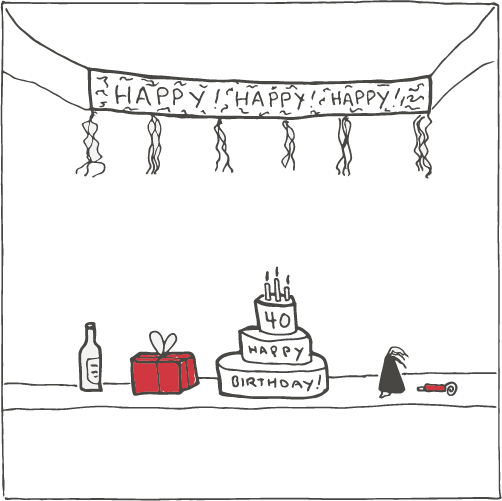 HAPPY! HAPPY! HAPPY!
40
HAPPY
BIRTHDAY!